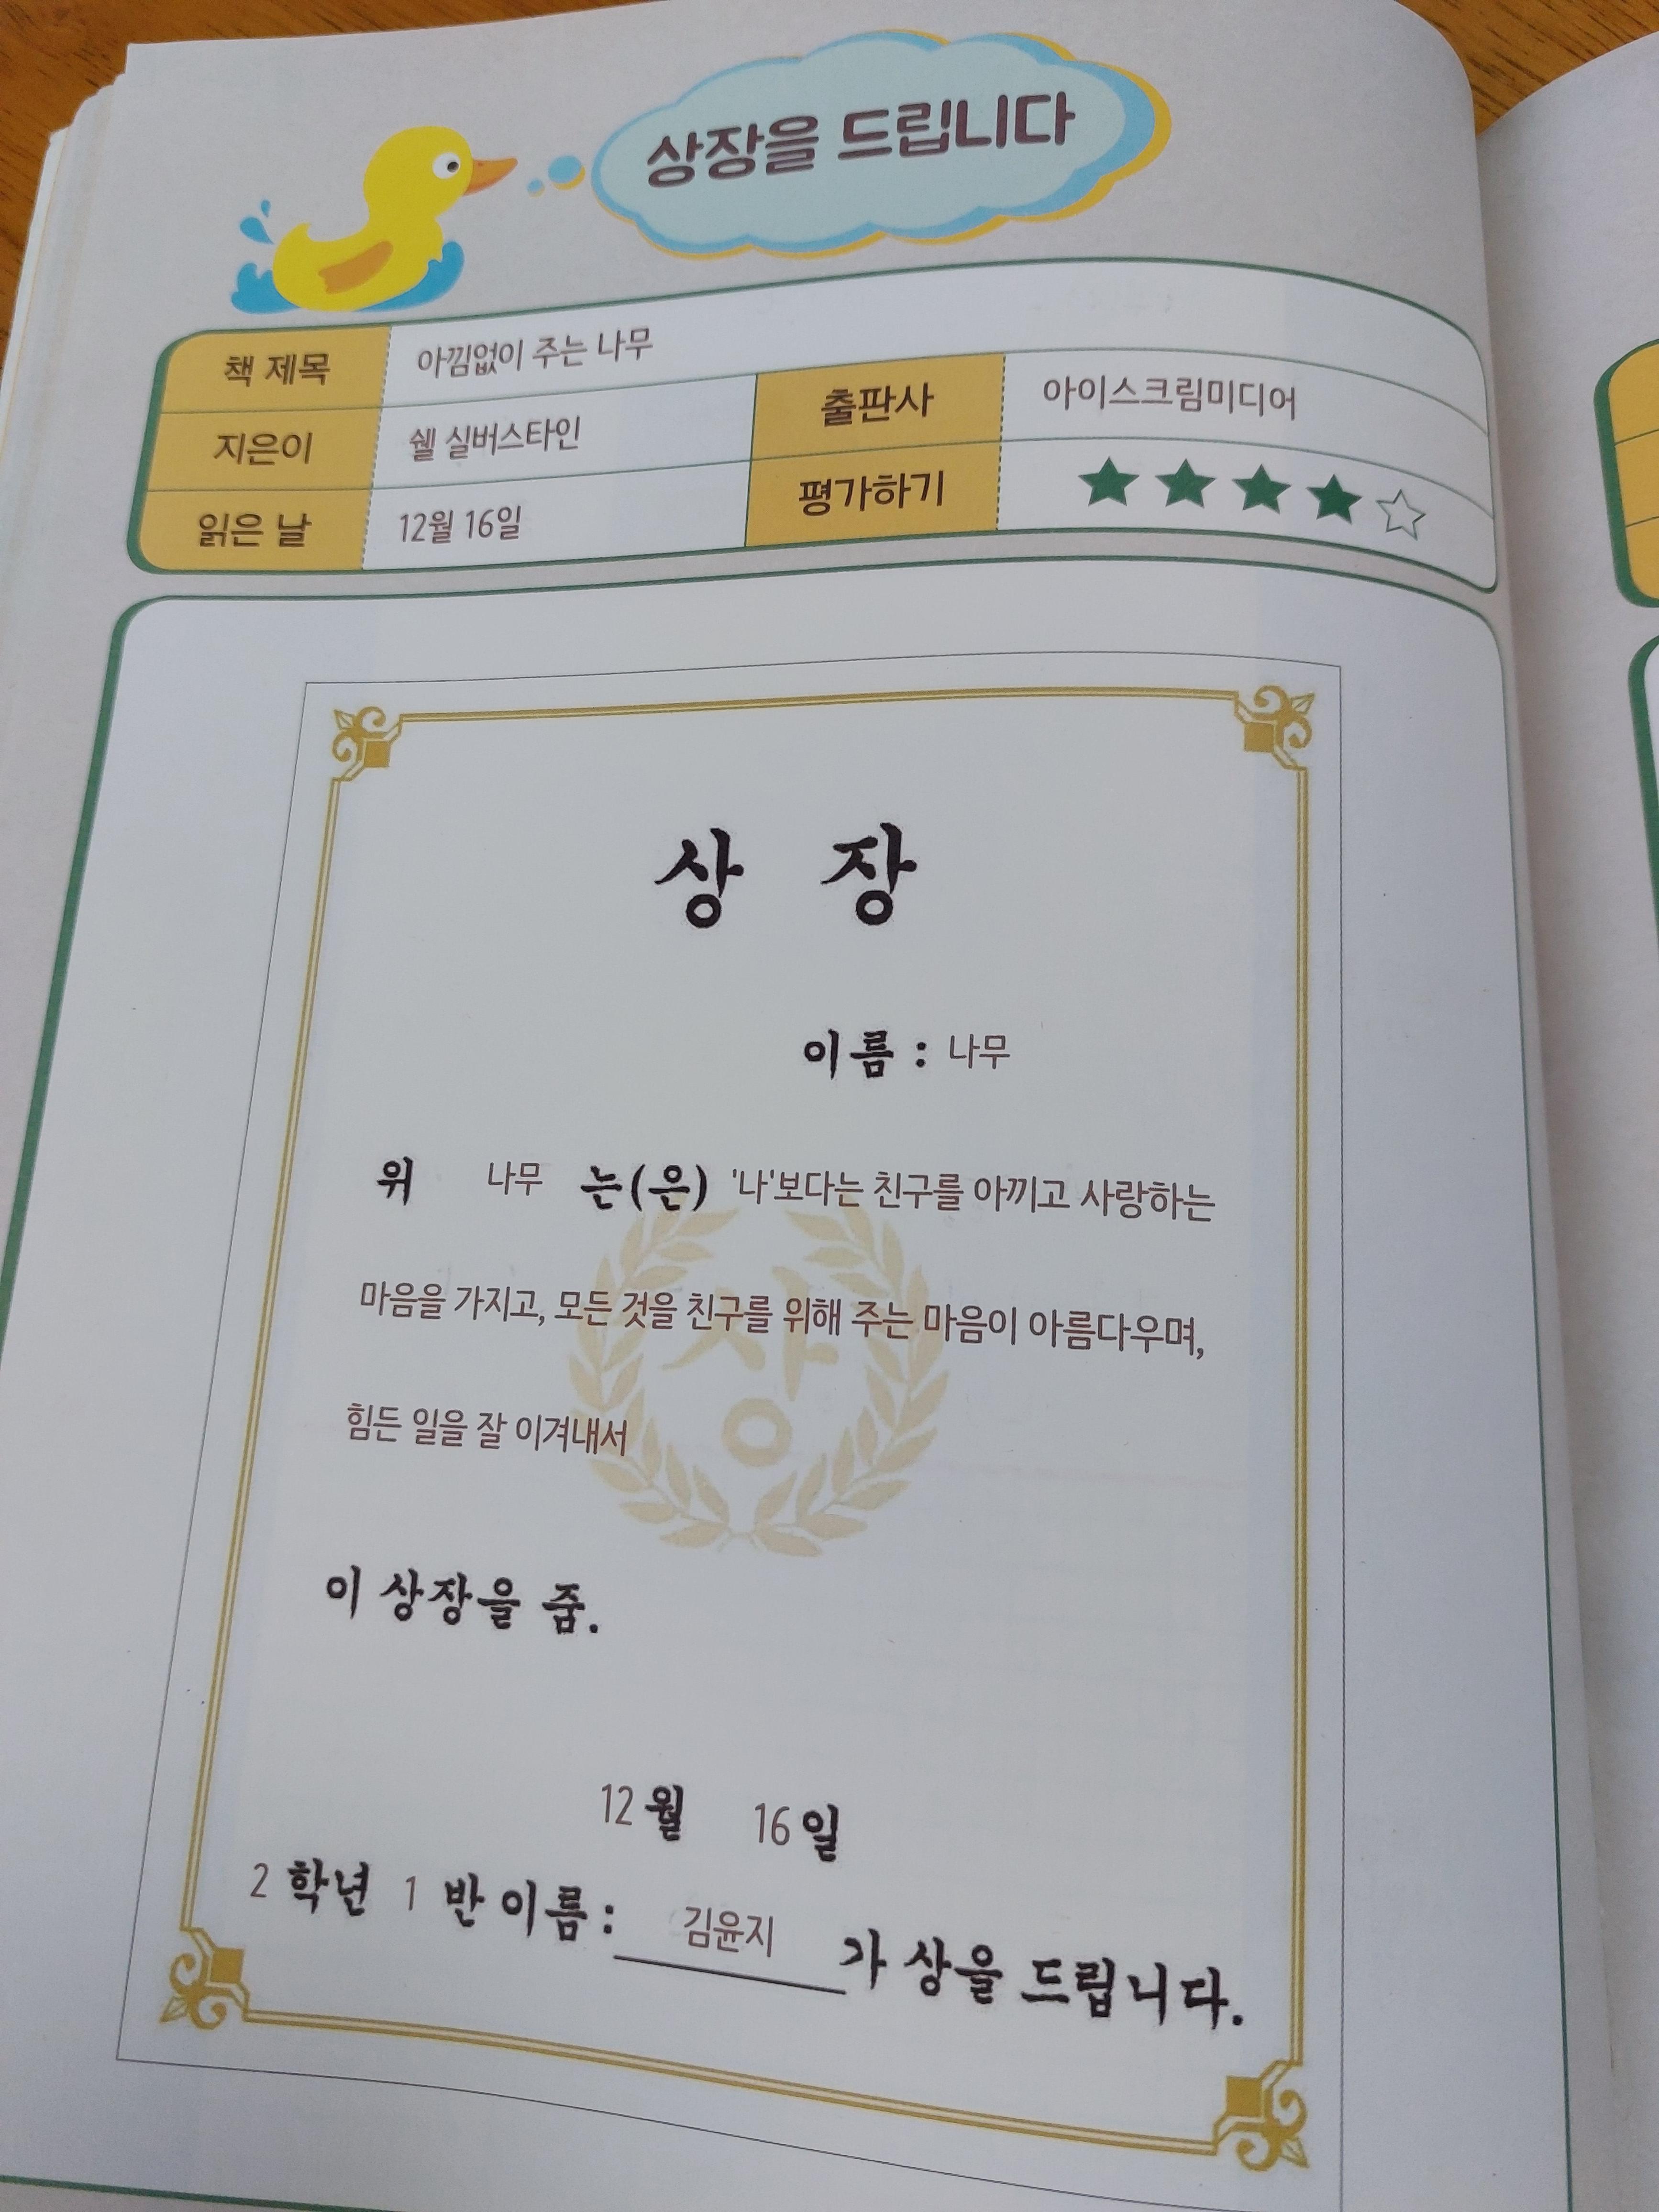 상장을 드립니다
책 제목 아낌없이 주는 나무
지은이 쉘 실버스타인 출판사 아이스크림미디어
읽은 날 12월 16일 평가하기
상 장
이름 : 나무
위 나무 는(은) '나'보다는 친구를 아끼고 사랑하는
마음을 가지고, 모든 것을 친구를 위해 주는 마음이 아름다우며,
힘든 일을 잘 이겨내서
상
이 상장을 줌.
12 월 16 일
2 학년 1 반 이름 : 김윤지 가 상을 드립니다.